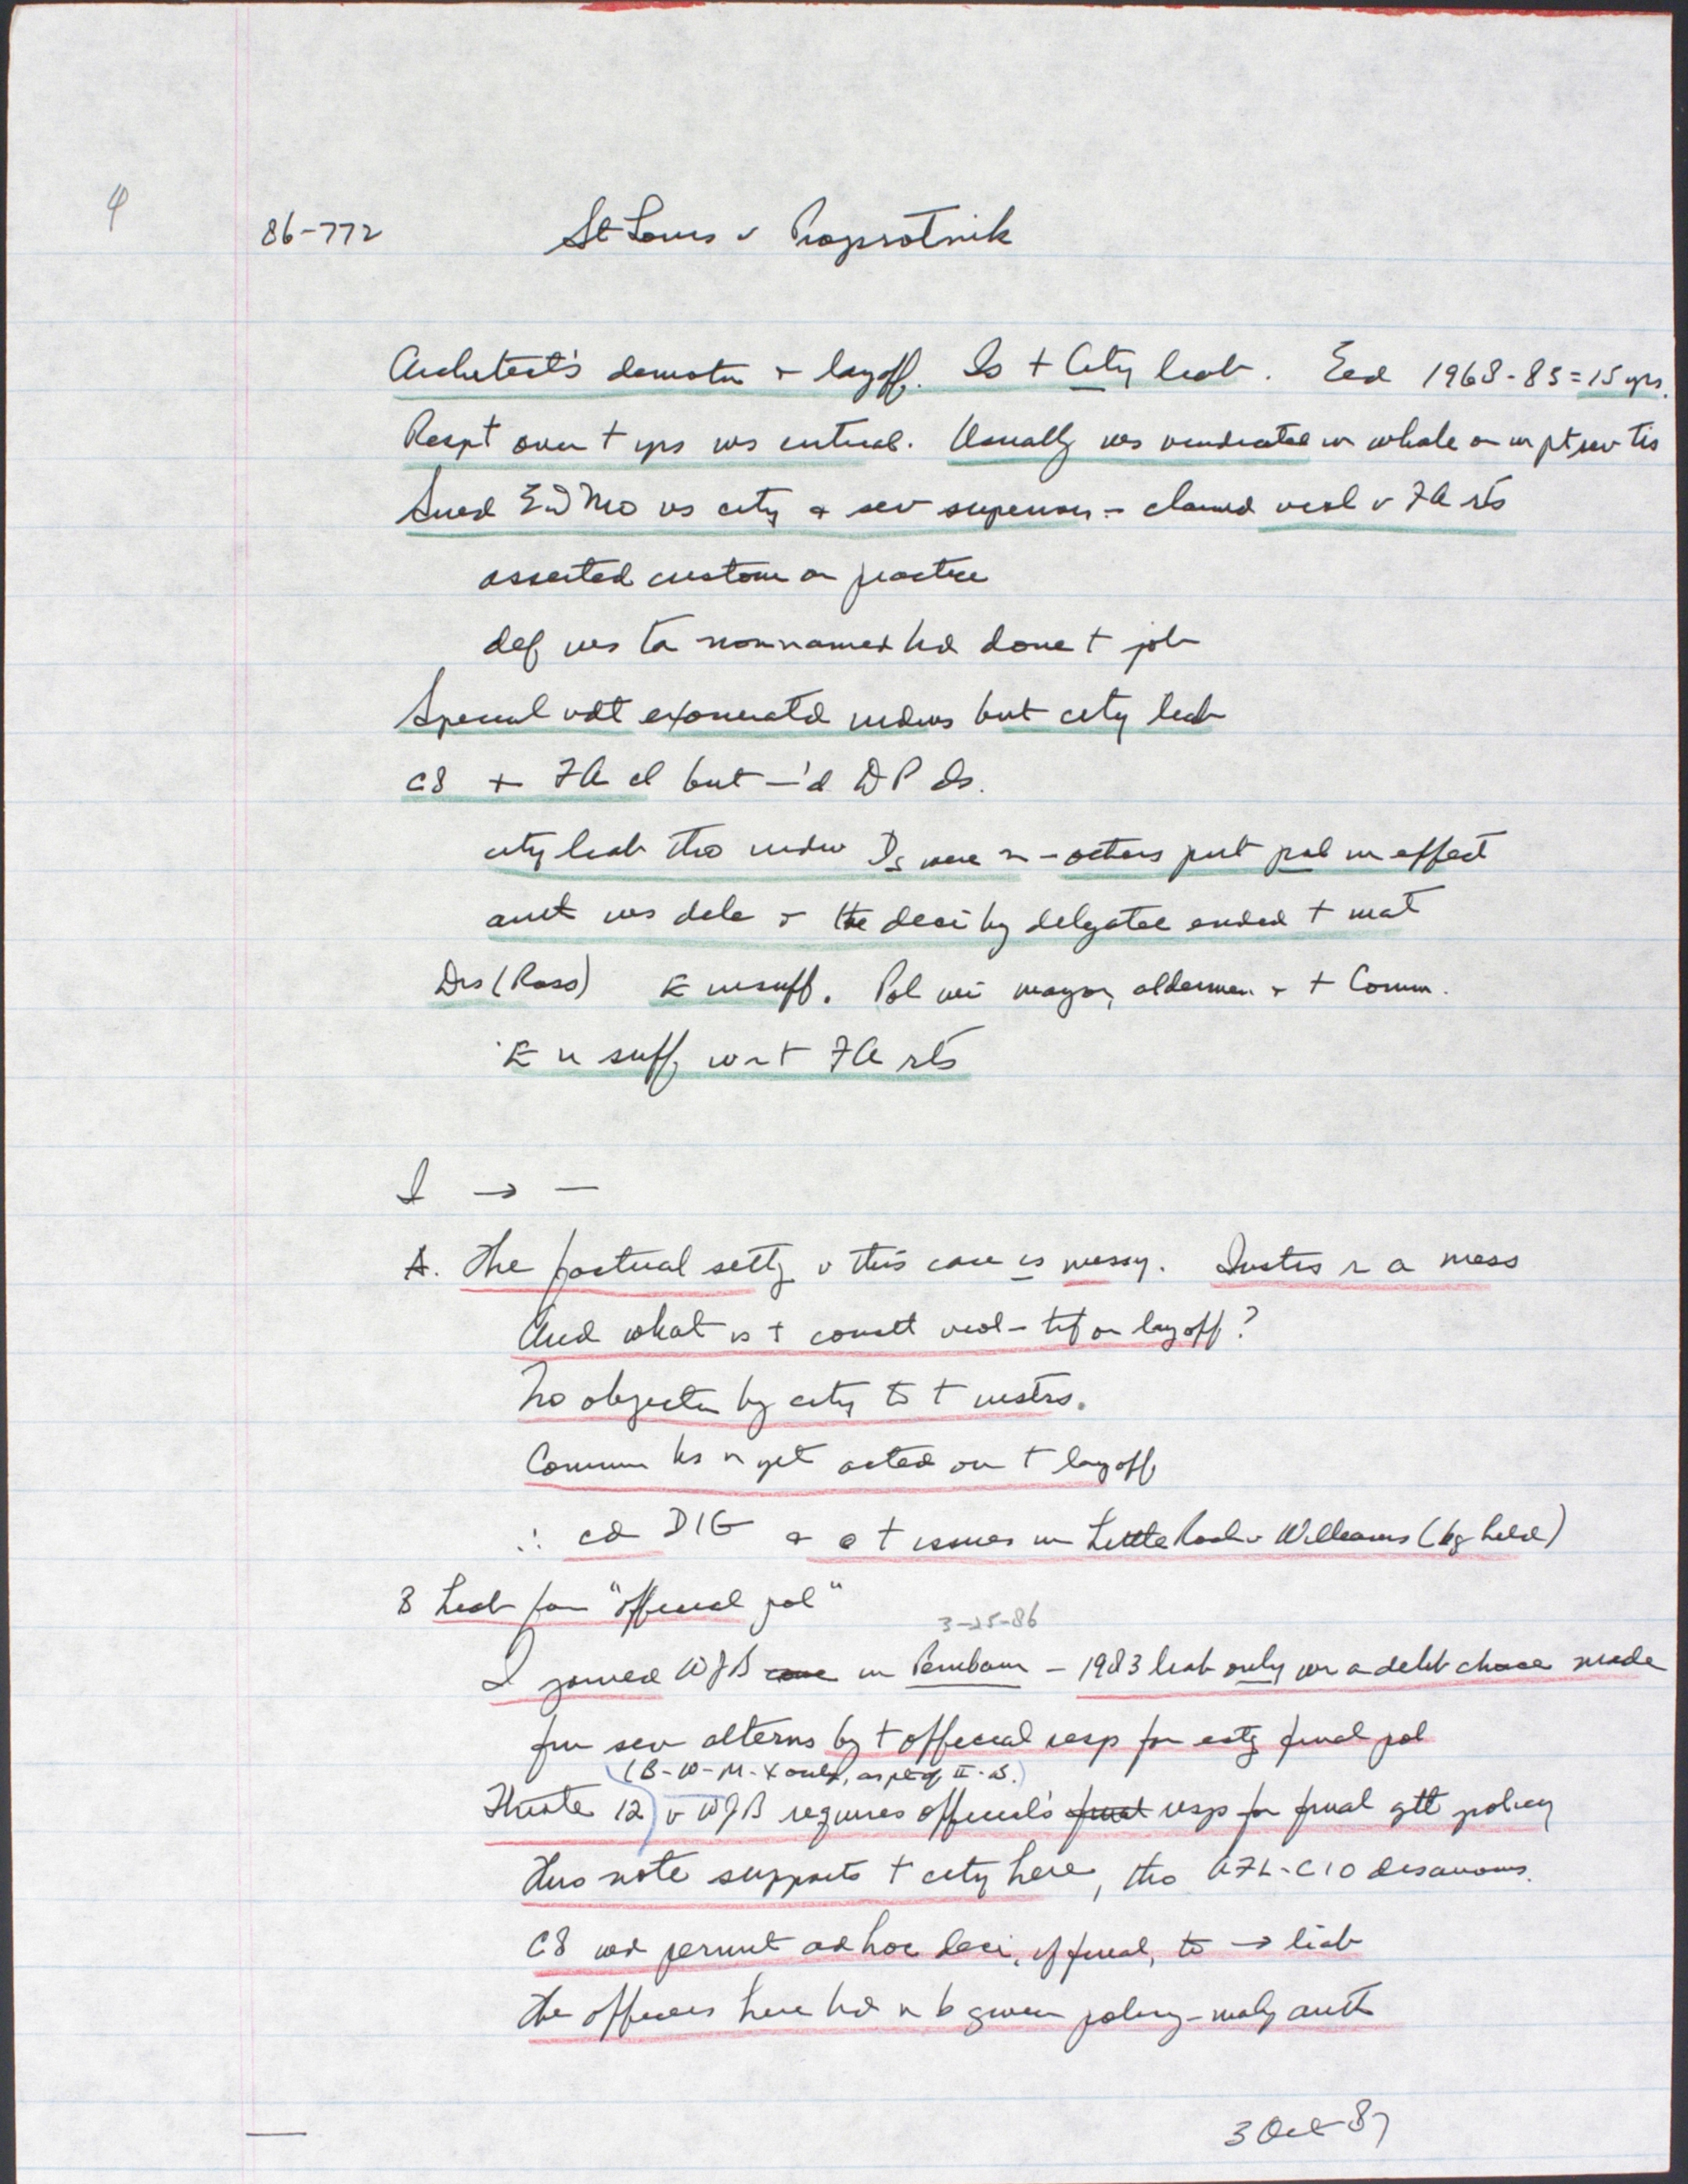 φ
86-772 St Louis v Praprotnik
Architect's demotn + layoff. Is t City liab. Eed 1968-83=15 yrs.
Respt over t yrs ws critical. Usually ws vindicated in whole or in pt sev tis
Sued EDMo vs city + sev supervsrs - claimed viol v FA rts
asserted custom or practice
def ws tt nonnamed hd done t job
Special vdt exonerated indivs but city liab
C8 + FA cl but -'d DP ds.
city liab tho indiv Ds were n - actions put pol in effect
aut ws dele + the deci by delegatee ended t mat
Dis (Ross) E insuff. Pol wi mayor, aldermen + t Comm.
E n suff wrt FA rts
I → —
A. The factual settg v this case is messy. Instrs r a mess
And what is t constl viol - tsf or layoff?
No objectn by city to t instrs.
Commn hs n yet acted on t layoff
∴ cd DIG + t issues in Little Rock v Williams (bg held)
B Liab for "official pol"
3-25-86
I joined WJB conc in Pembaur - 1983 liab only wr a delib choice made
fm sev alterns by t official resp for estg final pol
(B-W-M-X only, as pt of II-B.)
Thnote 12 v WJB requires official's final resp for final gtt policy
This note supports t city here, tho AFL-CIO disavows.
C8 wd permit ad hoc deci, if final, to → liab
The officers here hd n b given policy-makg auth
3 Oct 87